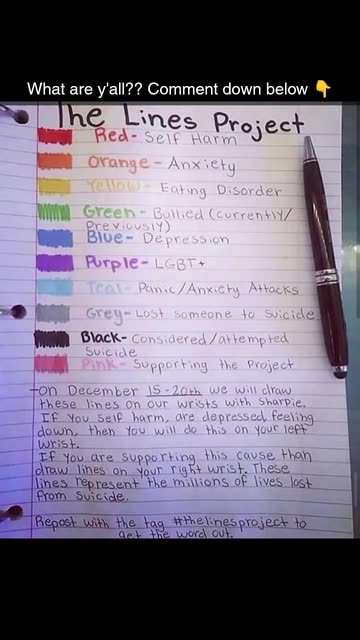 What are y'all?? Comment down below 👇
The Lines Project
Red - Self Harm
Orange - Anxiety
Yellow - Eating Disorder
Green - Bullied (currently/
Previously)
Blue - Depression
Purple - LGBT+
Teal - Panic/Anxiety Attacks
Grey - Lost someone to Suicide
Black - Considered/attempted
Suicide
Pink - Supporting the Project
-On December 15-20th we will draw
these lines on our wrists with Sharpie.
If you self harm, are depressed, feeling
down, then you will do this on your left
wrist.
If you are supporting this cause than
draw lines on your right wrist. These
lines represent the millions of lives lost
from suicide.
Repost with the tag #thelinesproject to
get the word out.